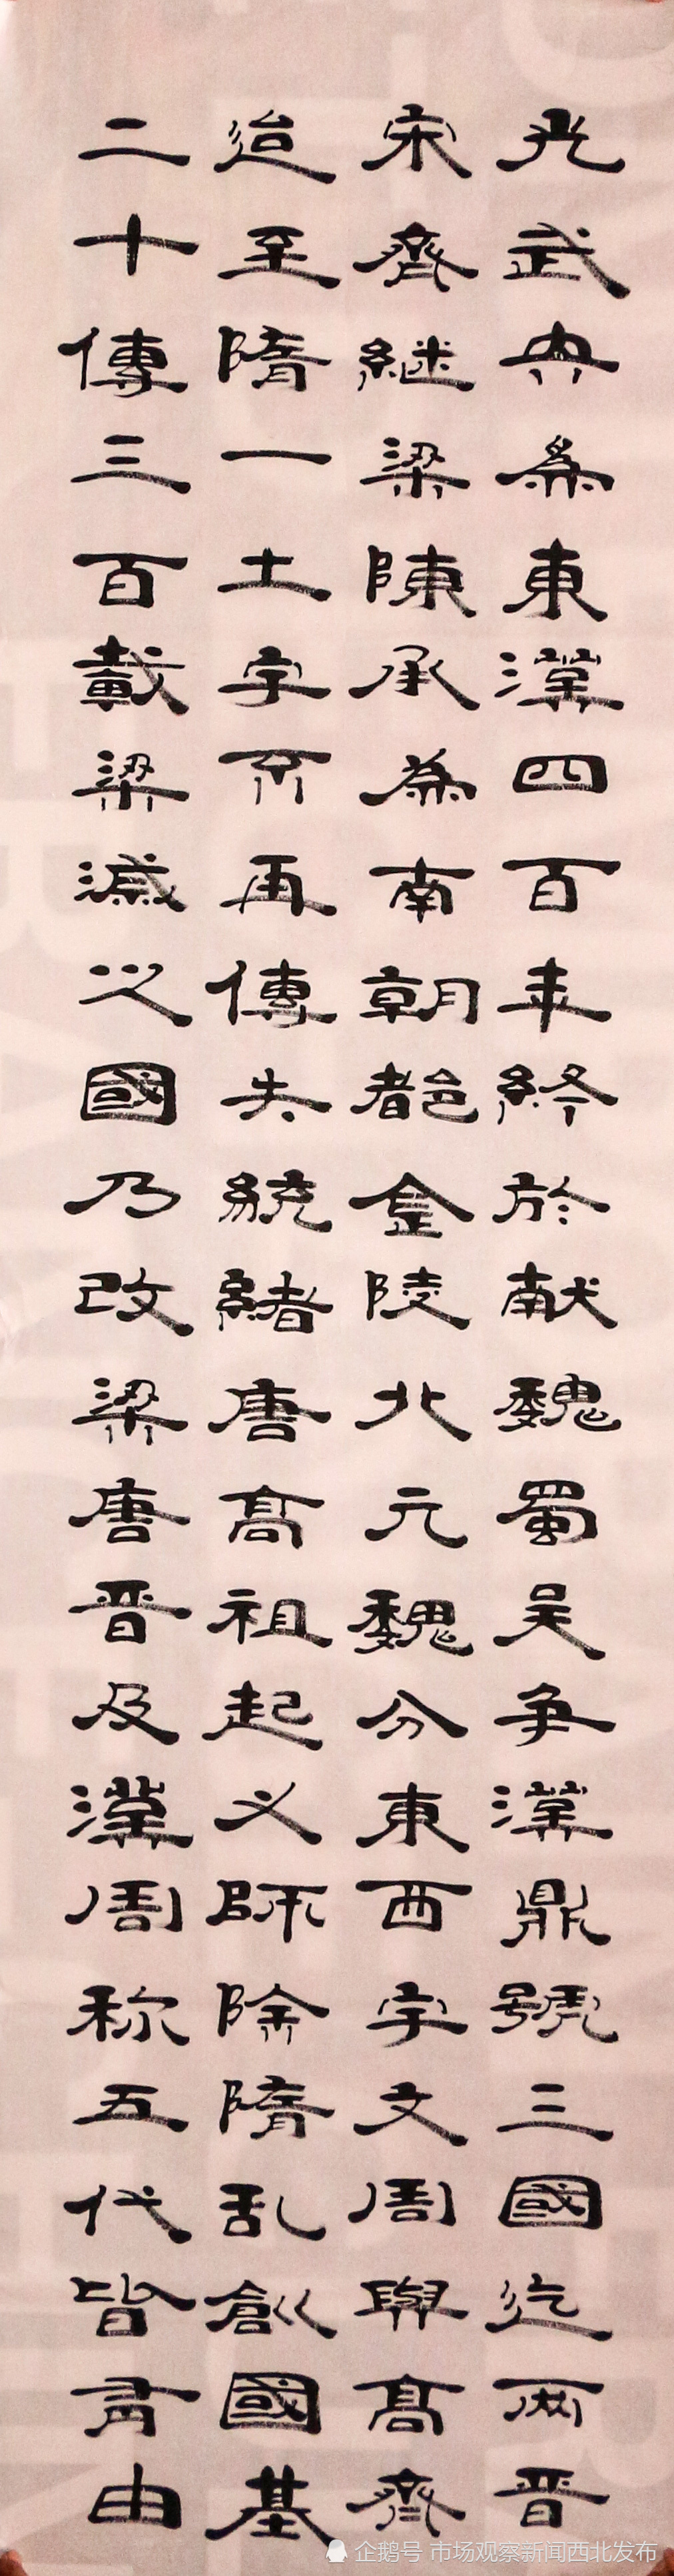 光武興為東漢四百年終於献魏蜀吴争漢鼎號三國迄兩晋
宋齊継梁陳承為南朝都金陵北元魏分東西宇文周與高齊
迨至隋一土宇不再傳失統緒唐高祖起义師除隋乱創國基
二十傳三百載梁滅之國乃改梁唐晋及漢周称五代皆有由
企鹅号 市场观察新闻西北发布